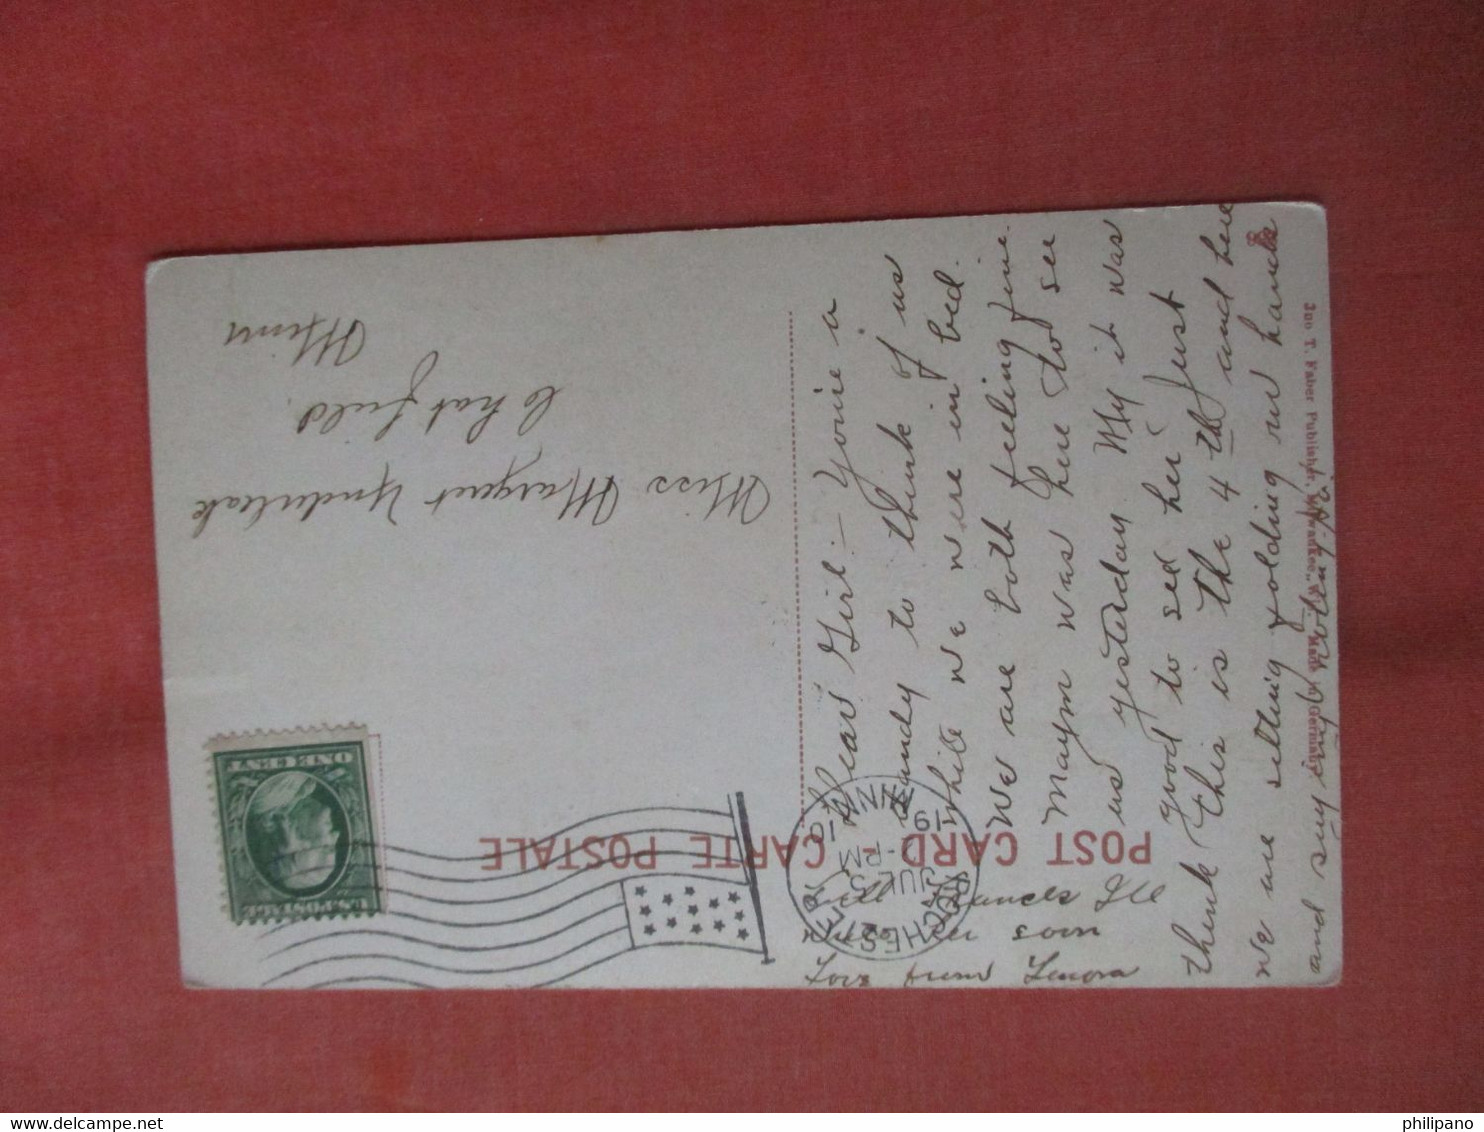 POST CARD - CARTE POSTALE
Dear Girl:- You're a
dandy to think of us
while we were in bed.
We are both feeling fine.
Maym was here to see
us yesterday. My it was
good to see her. Just
think this is the 4th and here
we are sitting folding our hands
and saying nothing.
Tell Francis I'll
write her soon
Love from Lenora
Miss Margaret Underleak
Chatfield
Minn
ROCHESTER, MINN.
JUL 5
-PM
1910
U.S. POSTAGE
ONE CENT
Jno T. Faber Publisher, Milwaukee, Wis. Made in Germany.
philipano
delcampe.net